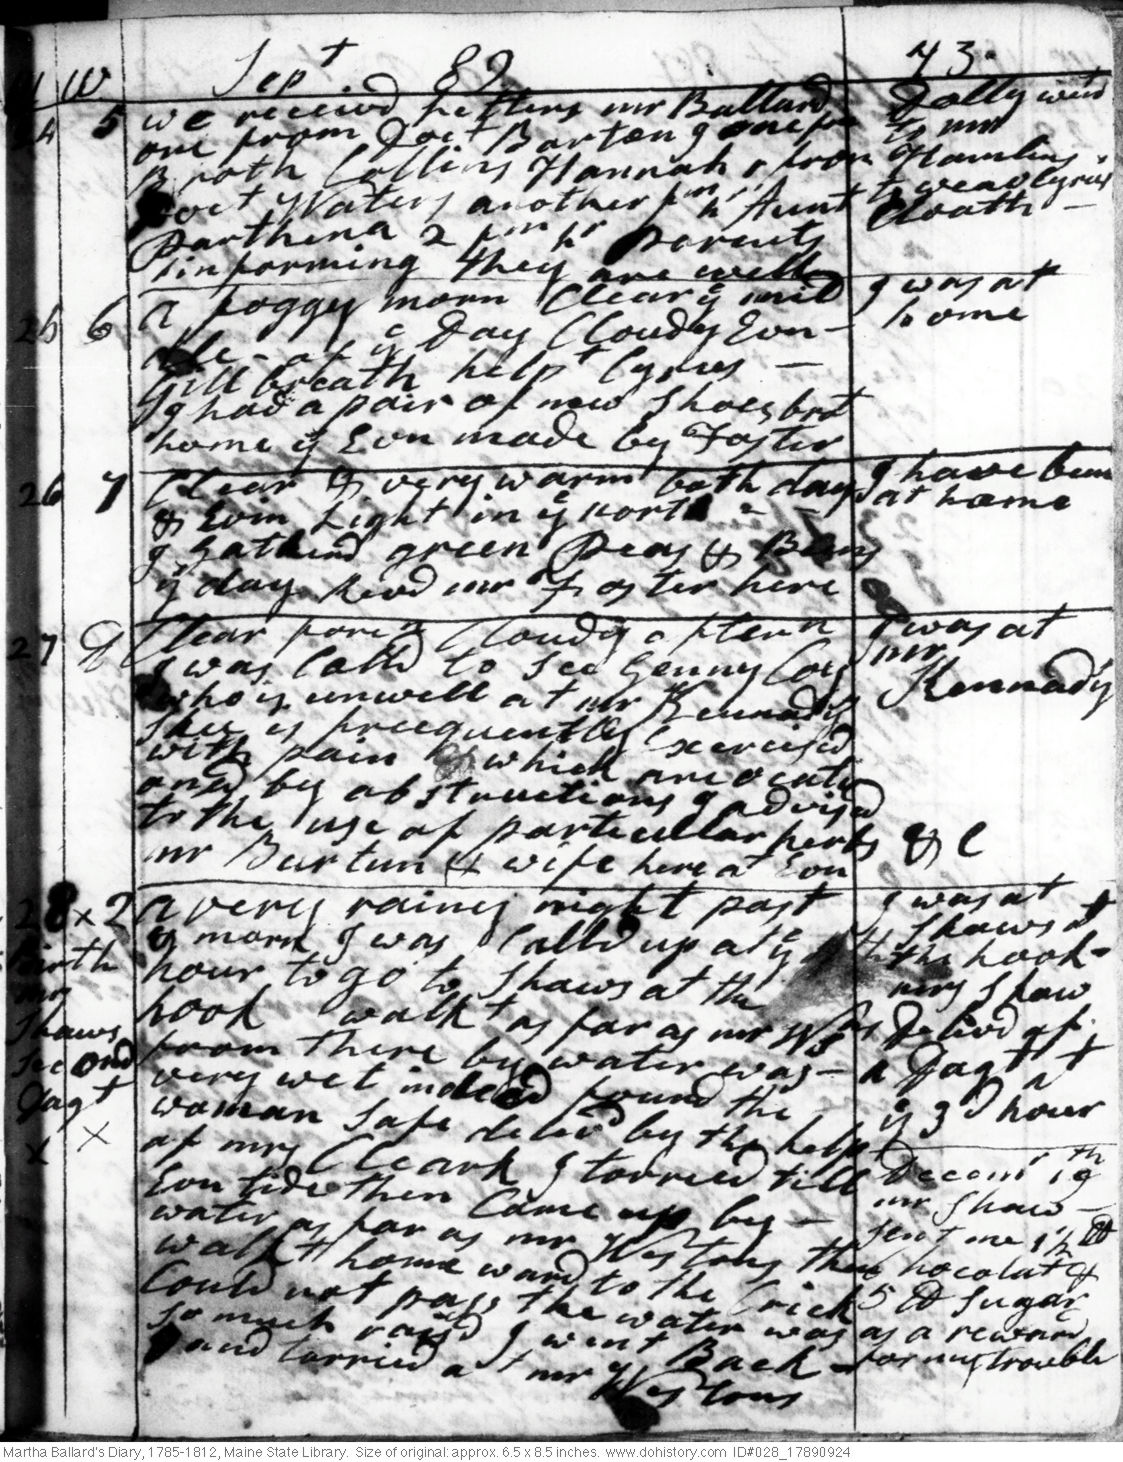 M W Sept 89 43.
24 5 we receivd Letters mr Ballard
one from Doct Barton & one from
Broth Collins Hannah 1 from
Doct Waters another fm hr Aunt
Parthena 2 fm hr Parents
informing they are well
Dolly went
to mr
Hamlins
to weav Cyrus
Cloath –
25 6 a foggy morn Clear & mild
of ye Day Cloudy Evn –
Gillbreath helpt Cyrus –
I had a pair of new Shoes brot
home ye Evn made by Foster
I was at
home
26 7 Clear & very warm both day
& Evin Light in ye North –
I Gatherd green Peas & Beens
ye day Revd mr Foster here
I have been
at home
27 G Clear foren Cloudy aftern
I was Calld to See Genny Coy
who is unwell at mr Kennadys
Shee is freequently Exercised
with pain which are ocati
ond by obstructions I advisd
to the use of particullar herbs & C
mr Burtun & wife here at Evn
I was at
mr
Kennadys
28 x 2 a very rainey night past
ye morn I was Calld up at ye 4th
hour to go to Shaws at the
hook walkt as far as mr Wss
from there by water was –
very wet indeed found the
woman Safe delivd by the help
of mrs Cleark I tarried till
Evn tide then Came up by –
water as far as mr Westons then
walkt home ward to the Crick
Could not pass the water was
So much raisd I went Back –
and tarried at mr
Westons
Birth
mr
Shaws
second
Dagt
x x
I was at
Shaws at
the hook –
mrs Shaw
Delivd of
a Dagt at
ye 3d hour
Decemr 19th
mr Shaw –
sent me 1½ lb
Chocolat &
5 lb Sugar
as a reward
for my trouble
Martha Ballard's Diary, 1785-1812, Maine State Library. Size of original: approx. 6.5 x 8.5 inches. www.dohistory.com ID#028_17890924